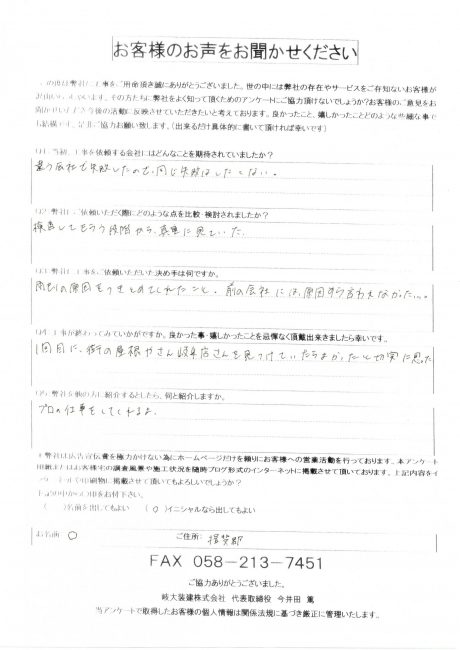 お客様のお声をお聞かせください
この度は弊社に工事をご用命頂き誠にありがとうございました。世の中には弊社の存在やサービスをご存知ないお客様が
その方たちに弊社をよく知って頂くためのアンケートにご協力頂けないでしょうか?お客様のご意見をお
今後の活動に反映させていただきたいと考えております。良かったこと、嬉しかったことどのような些細な事で
も結構です。是非ご協力お願い致します。(出来るだけ具体的に書いて頂ければ幸いです)
Q1.当初、工事を依頼する会社にはどんなことを期待されていましたか?
違う会社で失敗したので、同じ失敗はしたくない。
Q2.弊社にご依頼いただく際にどのような点を比較・検討されましたか?
検査してもらう段階から、真重に見ていた。
Q3.弊社に工事を、ご依頼いただいた決め手は何ですか。
雨もりの原因をつきとめてくれたこと。前の会社には、原因すら言われなかった…。
Q4.工事が終わってみていかがですか。良かった事・嬉しかったことを忌憚なく頂戴出来きましたら幸いです。
1回目に、街の屋根やさん岐阜店さんを見つけていたらよかったと切実に思った
Q5.弊社を他の方に紹介するとしたら、何と紹介しますか。
プロの仕事をしてくれるよ。
弊社は広告宣伝費を極力かけない為にホームページだけを頼りにお客様への営業活動を行っております。本アンケート
用紙またはお客様宅の調査風景や施工状況を随時ブログ形式のインターネットに掲載させて頂いております。上記内容をイ
印刷物に掲載させて頂いてもよろしいでしょうか?
( )名前を出してもよい (○)イニシャルなら出してもよい
お名前 ○ ご住所: 揖斐郡
FAX 058-213-7451
ご協力ありがとうございました。
岐大装建株式会社 代表取締役 今井田 篤
当アンケートで取得したお客様の個人情報は関係法規に基づき厳正に管理いたします。